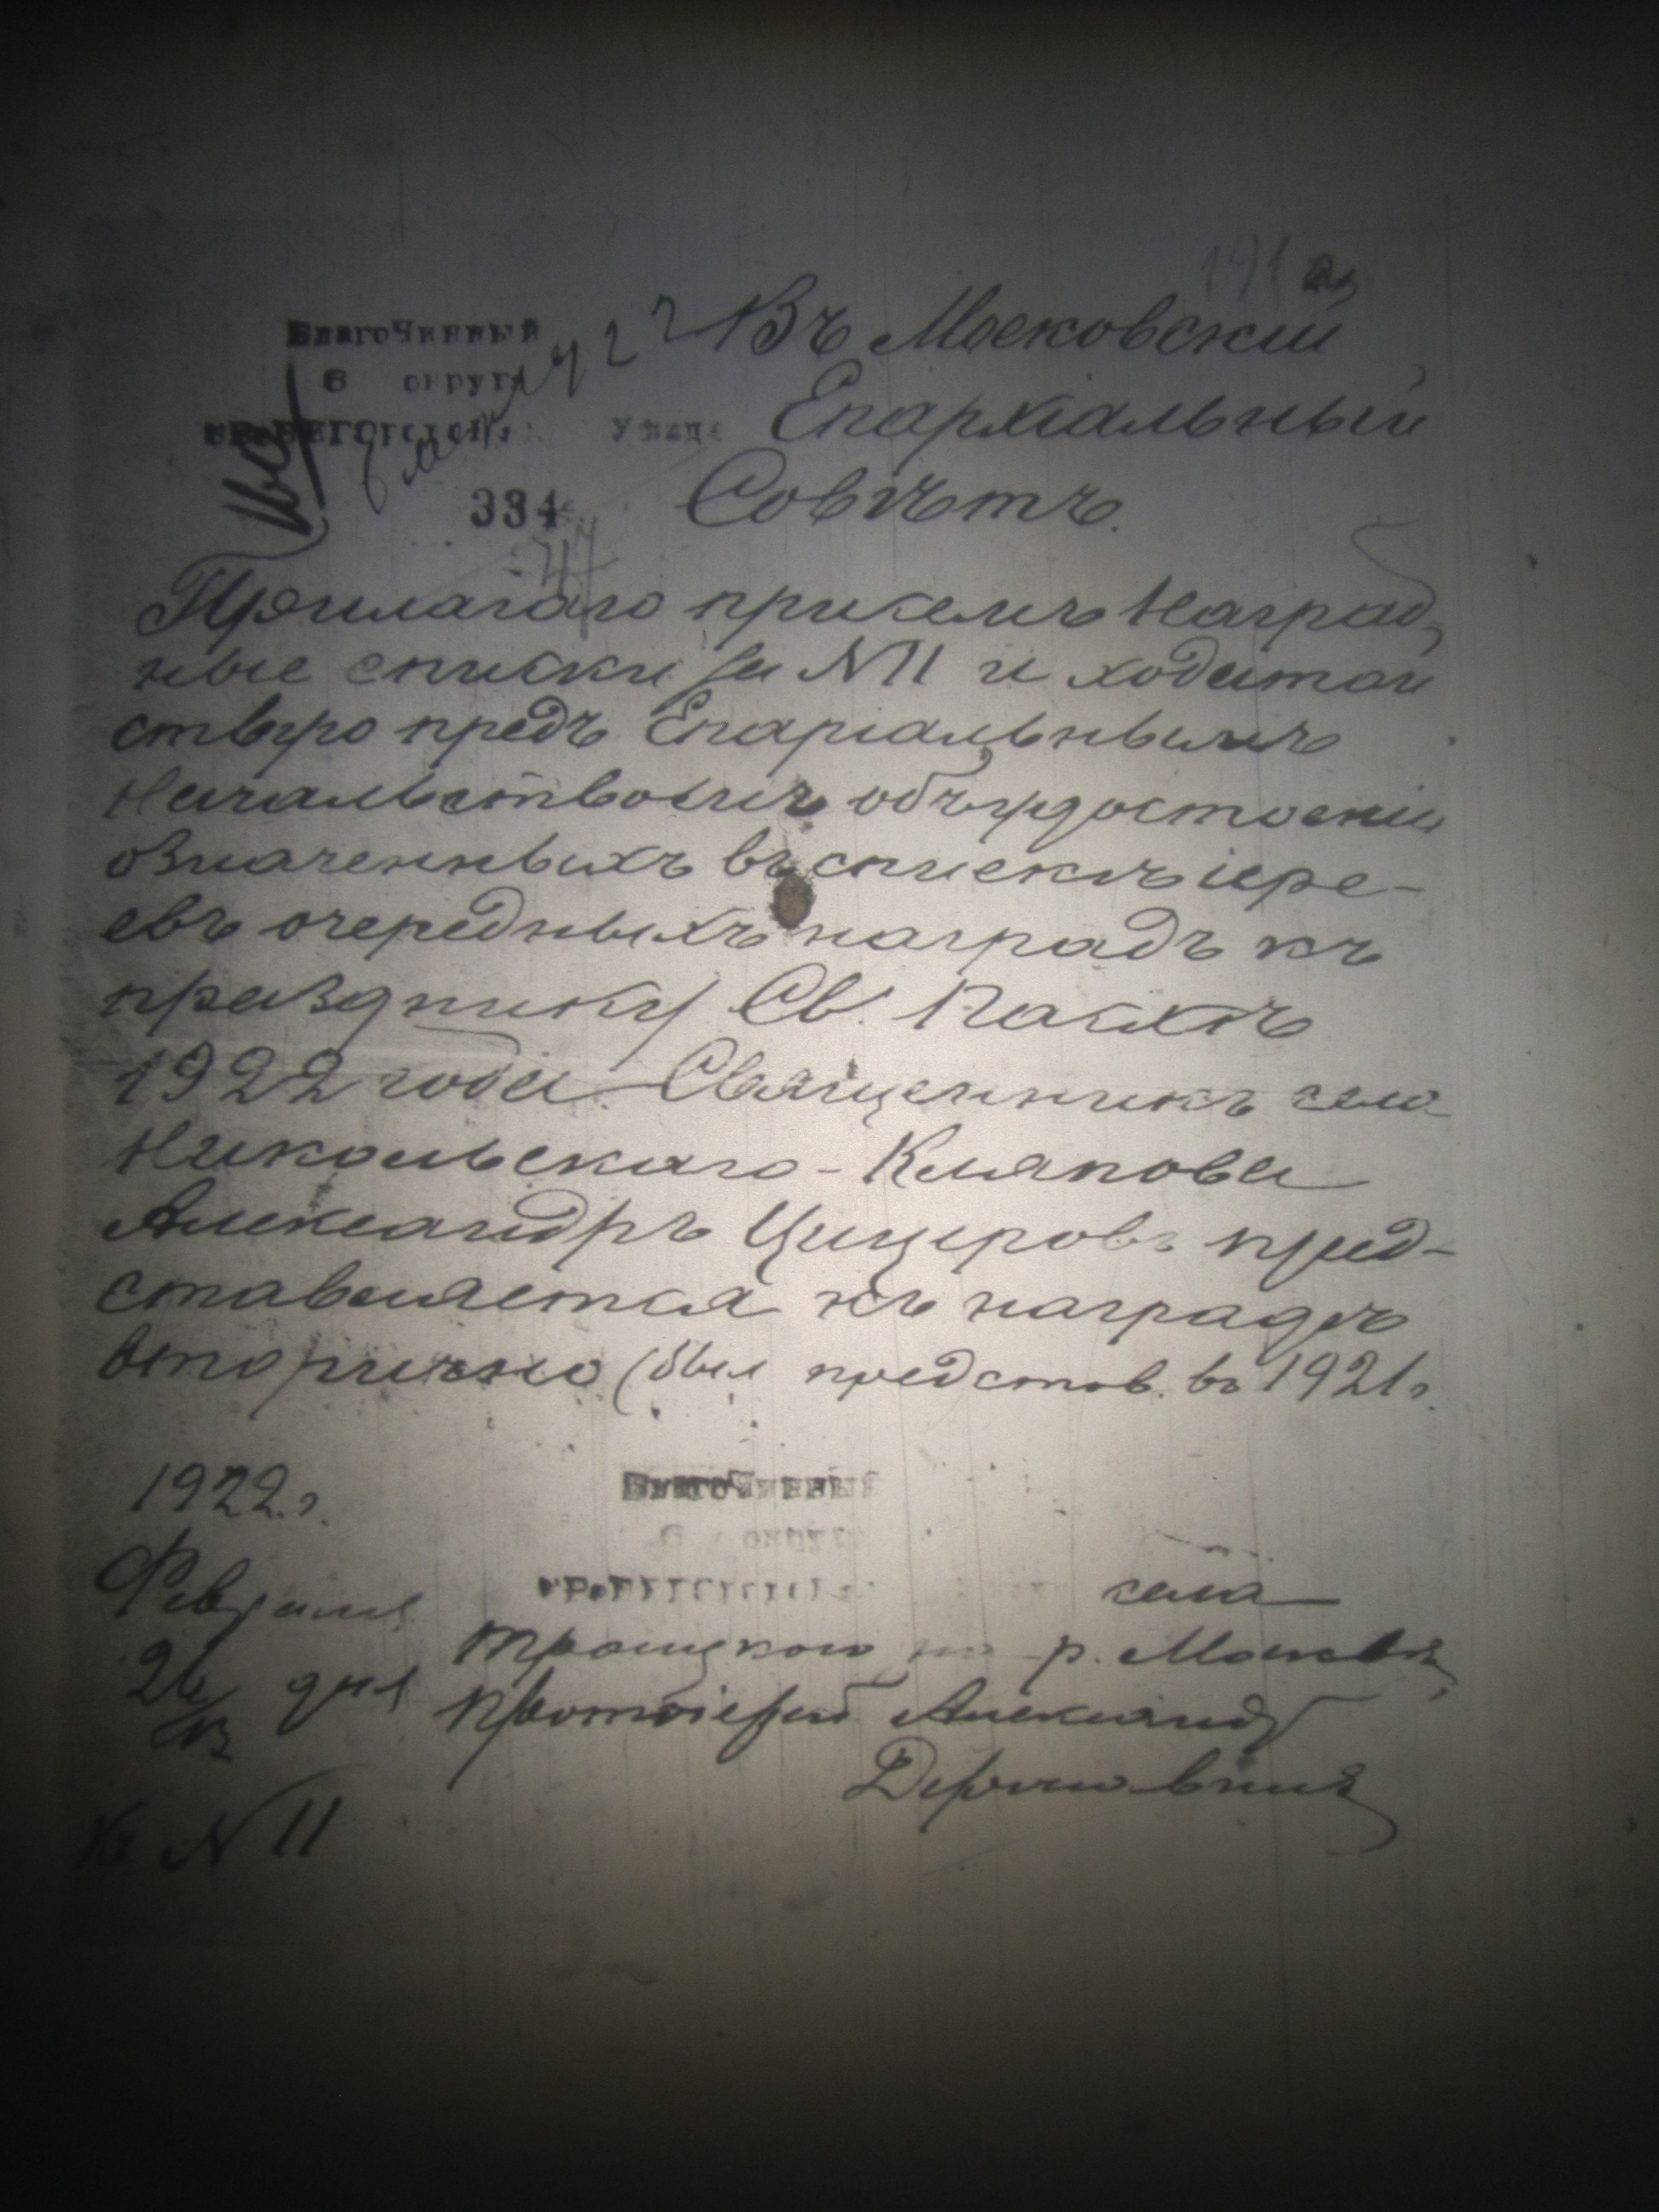 Благочинный
6 округа
уѣзда
334
Въ Московскій
Епархіальный
Совѣтъ.
Прилагаю при семъ Наград-
ные списки за №11 и ходатай
ствую предъ Епархіальнымъ
Начальствомъ объ удостоеніи
означенныхъ въ спискѣ іере-
евъ очередныхъ наградъ къ
празднику Св. Пасхѣ
1922 года. Священникъ села
Никольскаго-Кляпова
Александръ Цицеровъ пред-
ставляется къ наградѣ
вторично (был представ. въ 1921 г.
1922 г.
Февраля
26 дня
13
№ 11
Благочинный
6 округа
села
Троицкого на р. Москвѣ,
Протоіерей Александръ